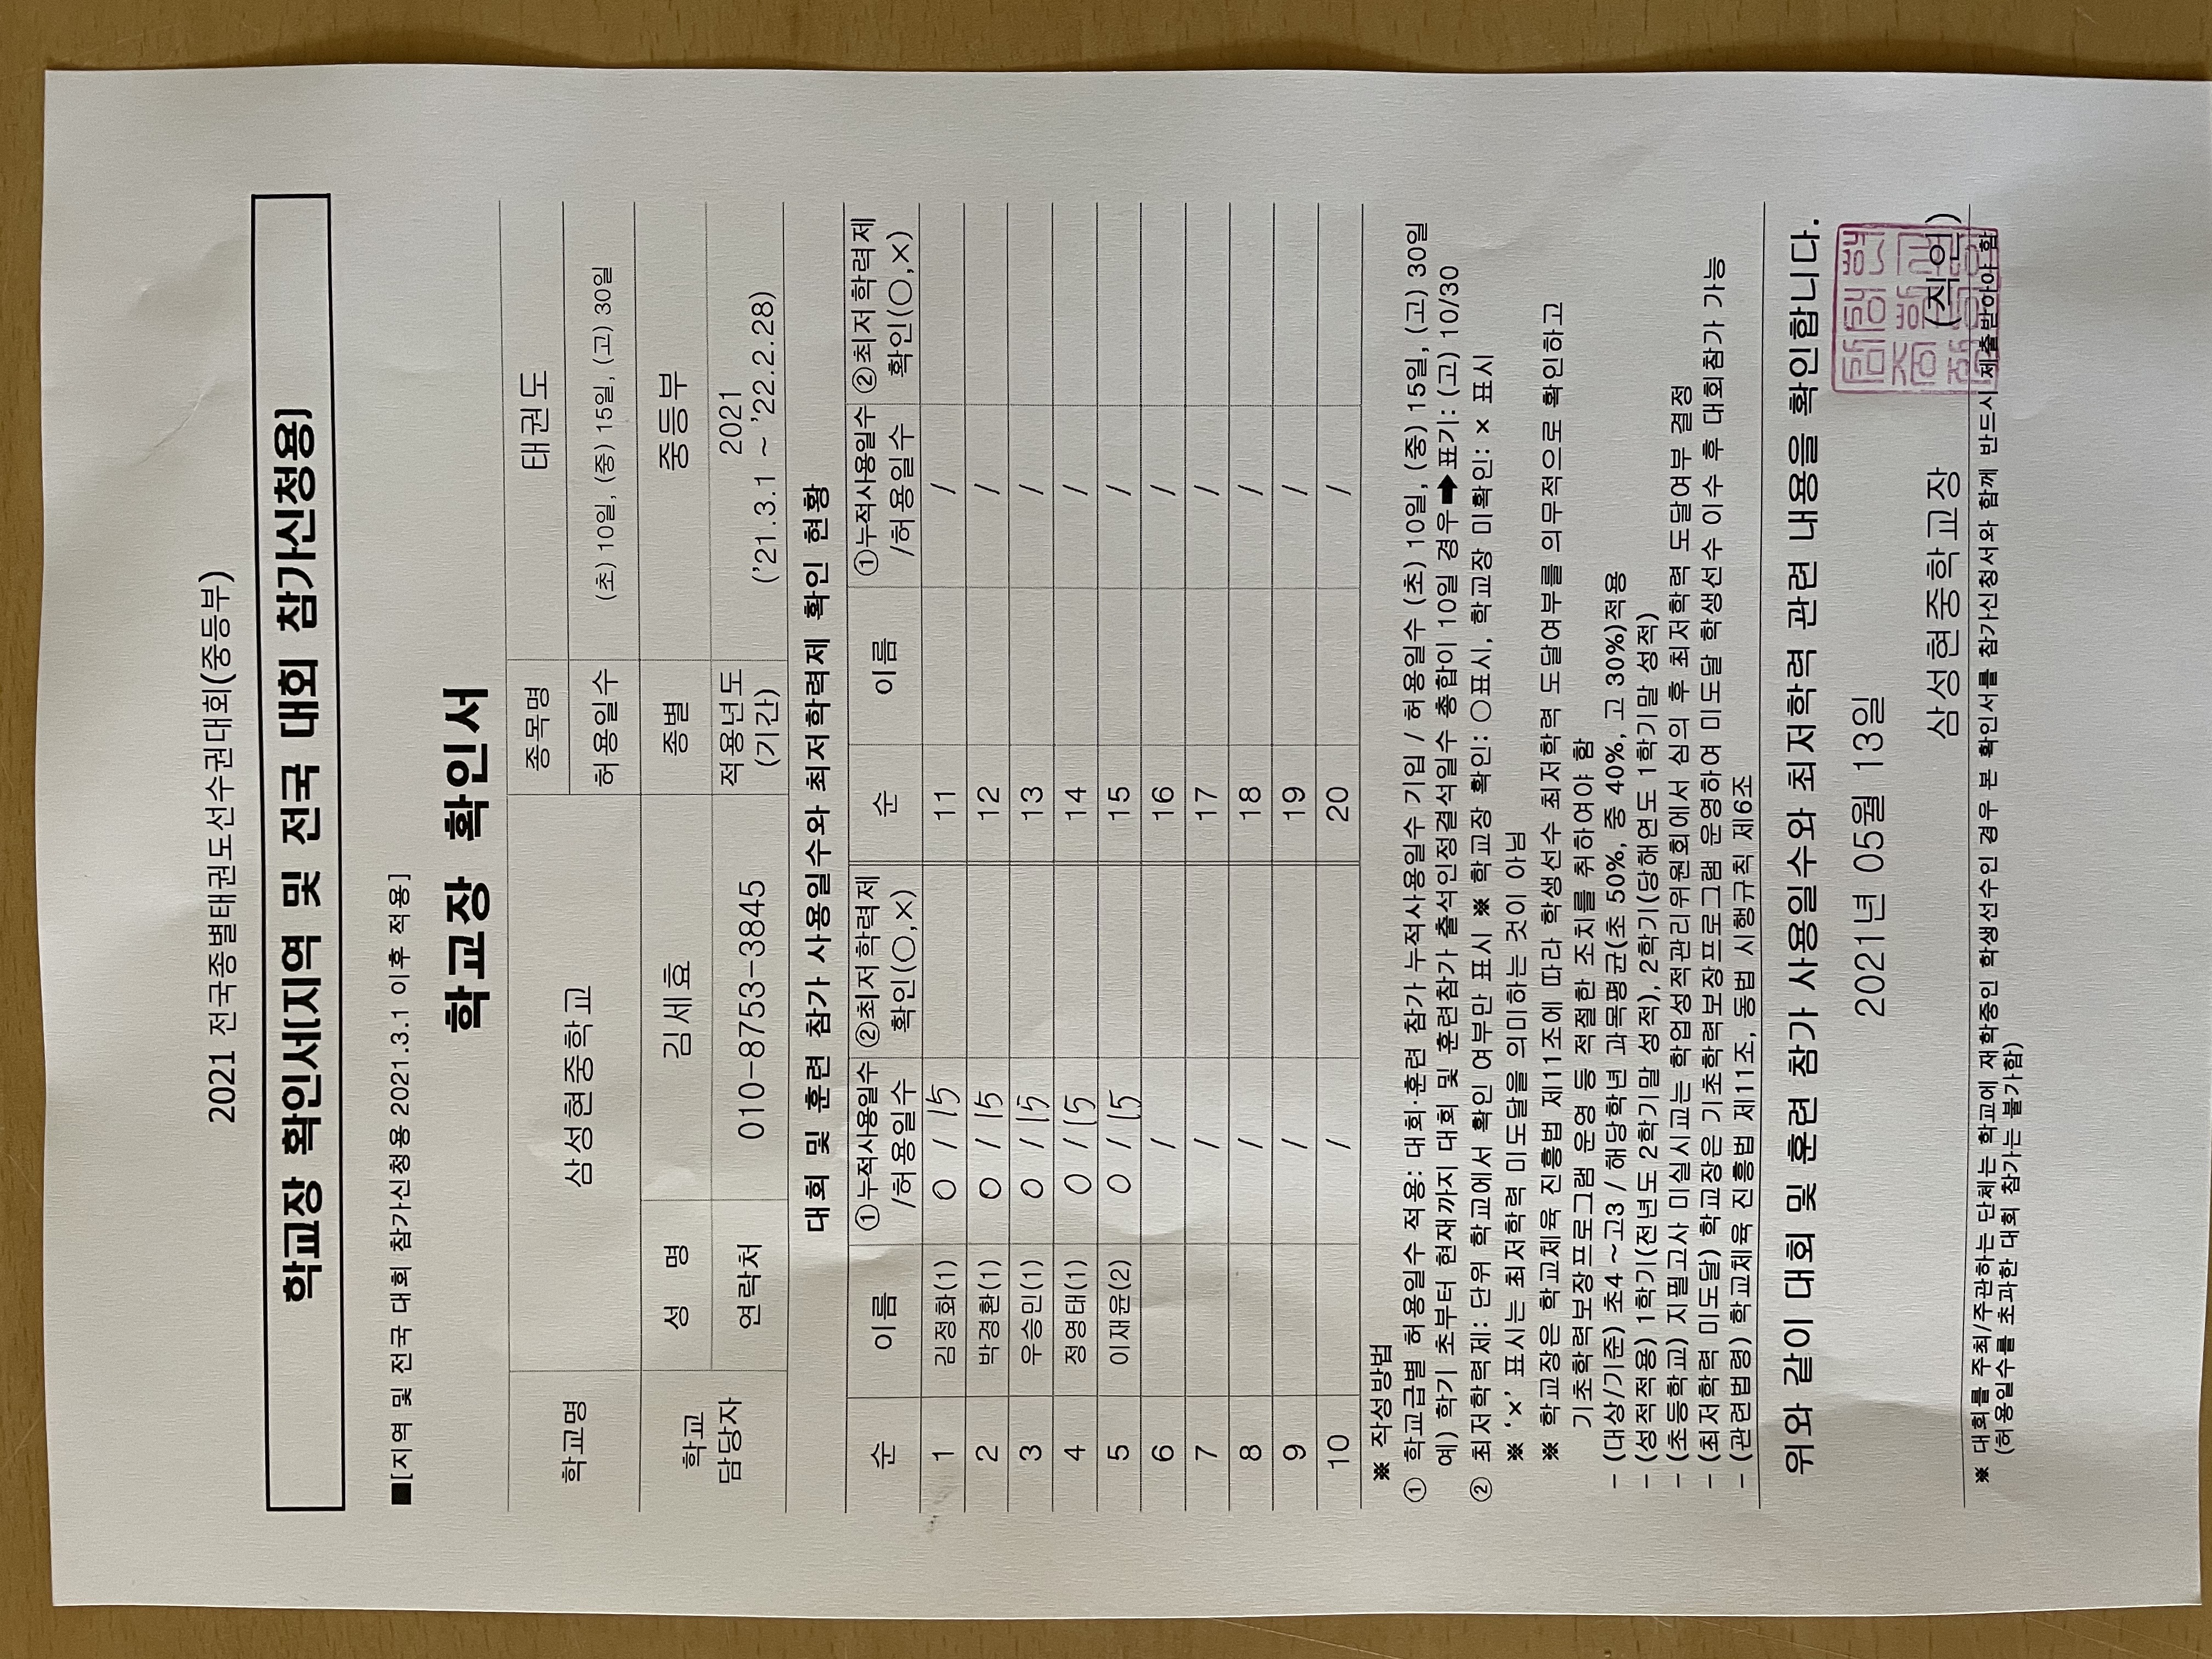 2021 전국종별태권도선수권대회(중등부)
학교장 확인서[지역 및 전국 대회 참가신청용]
■[지역 및 전국 대회 참가신청용 2021.3.1 이후 적용]
학교장 확인서
학교명 삼성현중학교 종목명 태권도
허용일수 (초) 10일, (중) 15일, (고) 30일
학교 담당자 성 명 김세효 종별 중등부
연락처 010-8753-3845 적용년도 (기간) 2021 ('21.3.1 ~ '22.2.28)
대회 및 훈련 참가 사용일수와 최저학력제 확인 현황
순 이름 ①누적사용일수 /허용일수 ②최저학력제 확인(○,×) 순 이름 ①누적사용일수 /허용일수 ②최저학력제 확인(○,×)
1 김정화(1) 0 / 15 11 /
2 박경환(1) 0 / 15 12 /
3 우승민(1) 0 / 15 13 /
4 정영태(1) 0 / 15 14 /
5 이재윤(2) 0 / 15 15 /
6 / 16 /
7 / 17 /
8 / 18 /
9 / 19 /
10 / 20 /
※ 작성방법
① 학교급별 허용일수 적용: 대회·훈련 참가 누적사용일수 기입 / 허용일수 (초) 10일, (중) 15일, (고) 30일
예) 학기 초부터 현재까지 대회 및 훈련참가 출석인정결석일수 총합이 10일 경우➡표기: (고) 10/30
② 최저학력제: 단위 학교에서 확인 여부만 표시 ※ 학교장 확인: ○표시, 학교장 미확인: × 표시
※ '×' 표시는 최저학력 미도달을 의미하는 것이 아님
※ 학교장은 학교체육 진흥법 제11조에 따라 학생선수 최저학력 도달여부를 의무적으로 확인하고
기초학력보장프로그램 운영 등 적절한 조치를 취하여야 함
- (대상/기준) 초4 ~ 고3 / 해당학년 과목평균(초 50%, 중 40%, 고 30%)적용
- (성적적용) 1학기(전년도 2학기말 성적), 2학기(당해연도 1학기말 성적)
- (초등학교) 지필고사 미실시교는 학업성적관리위원회에서 심의 후 최저학력 도달여부 결정
- (최저학력 미도달) 학교장은 기초학력보장프로그램 운영하여 미도달 학생선수 이수 후 대회참가 가능
- (관련법령) 학교체육 진흥법 제11조, 동법 시행규칙 제6조
위와 같이 대회 및 훈련 참가 사용일수와 최저학력 관련 내용을 확인합니다.
2021년 05월 13일
삼성현중학교장 (직인)
※ 대회를 주최/주관하는 단체는 학교에 재학중인 학생선수인 경우 본 확인서를 참가신청서와 함께 반드시 제출받아야 함
(허용일수를 초과한 대회 참가는 불가함)